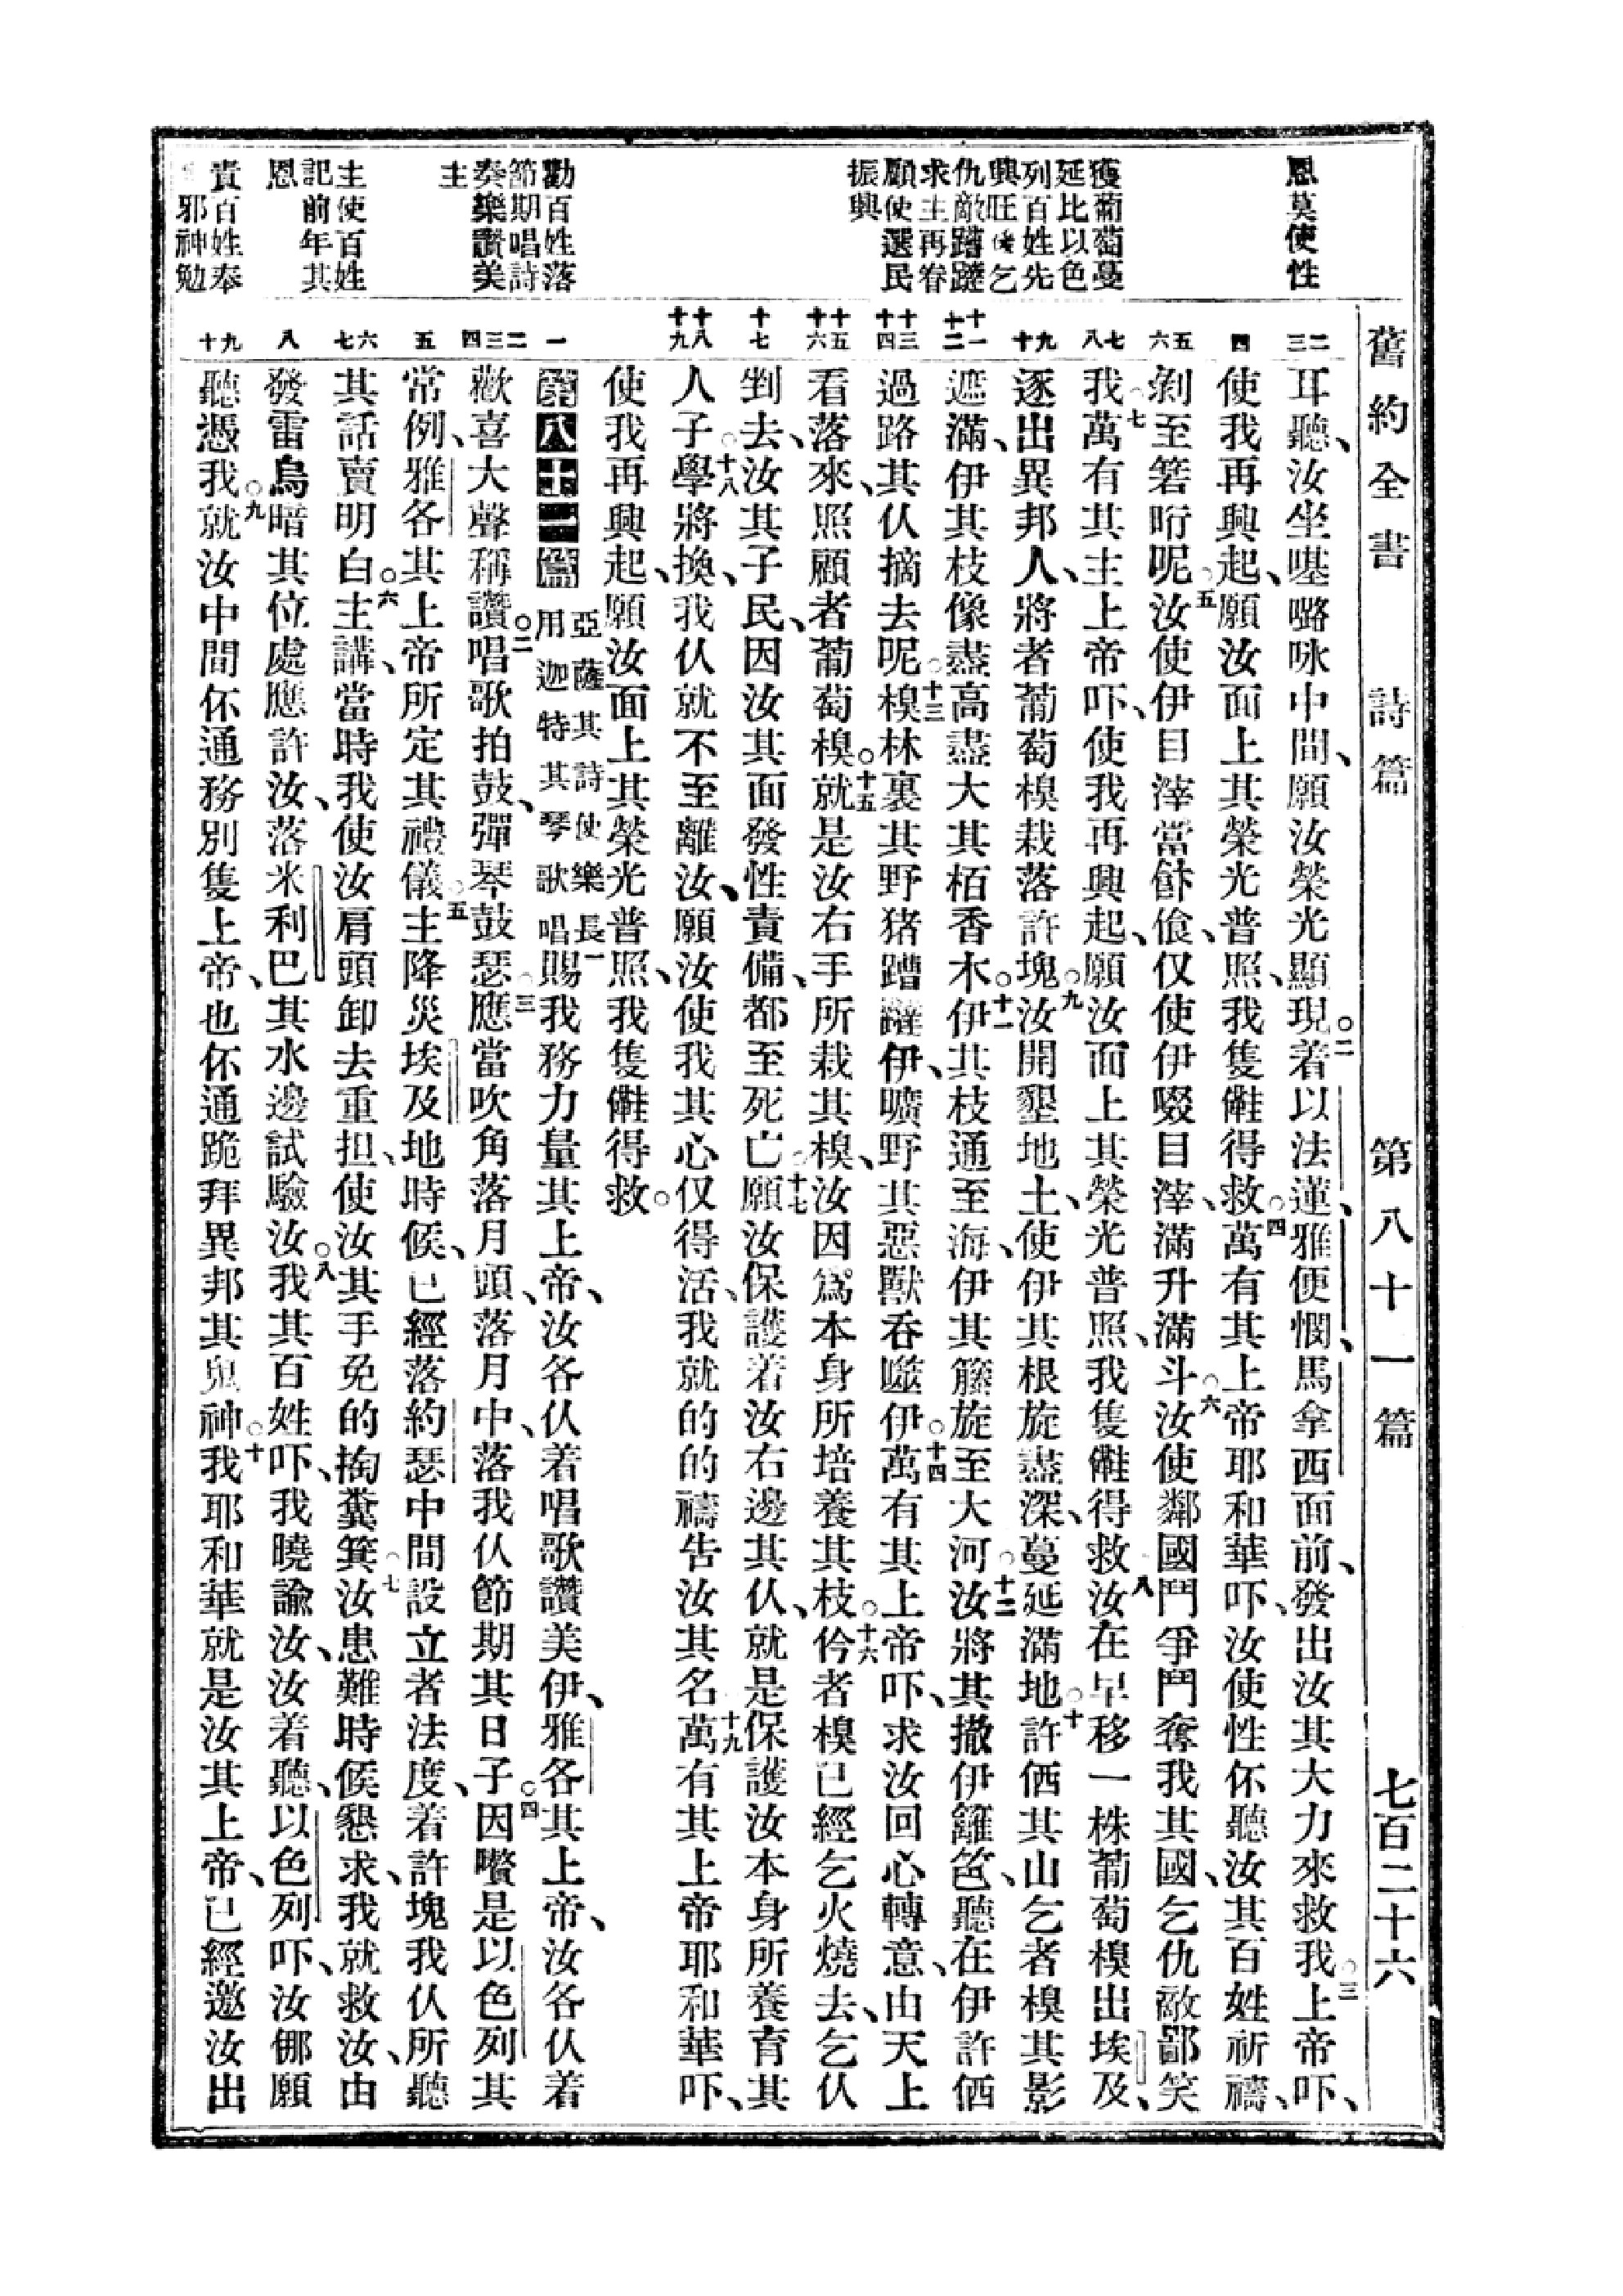 舊約全書 詩篇 第八十一篇 七百二十六
恩莫使性
獲葡萄蔓
延比以色
列百姓先
興旺後乞
仇敵蹧躂
求主再眷
願使選民
振興
勸百姓落
節期唱詩
奏樂讚美
主
主使百姓
記前年其
恩
責百姓奉
邪神勉
二 三 四 五 六 七 八 九 十 十一 十二 十三 十四 十五 十六 十七 十八 十九 一 二 三 四 五 六 七 八 九 十
耳聽、汝坐𡅏嚧咏中間、願汝榮光顯現○二着以法蓮、雅便憫、馬拿西面前、發出汝其大力來救我○三上帝吓、
使我再興起、願汝面上其榮光普照、我隻儺得救○四萬有其上帝耶和華吓、汝使性伓聽汝其百姓祈禱、
剝至箬㫄呢○五汝使伊目滓當餅飱、仅使伊啜目滓、滿升滿斗○六汝使鄰國鬥爭鬥奪我其國、乞仇敵鄙笑
我○七萬有其主上帝吓、使我再興起、願汝面上其榮光普照、我隻儺得救○八汝在早移一株葡萄樣出埃及、
逐出異邦人、將者葡萄樣栽落許塊○九汝開墾地土、使伊其根旋盡深、蔓延滿地○十許㑚其山乞者樣其影
遮滿、伊其枝像盡高盡大其栢香木○十一伊其枝通至海、伊其籐旋至大河○十二汝將其撤伊籬笆、聽在伊許㑚
過路其仈摘去呢○十三樣林裏其野猪蹧躂伊、曠野其惡獸呑噬伊○十四萬有其上帝吓、求汝回心轉意、由天上
看落來、照顧者葡萄樣○十五就是汝右手所栽其樣、汝因爲本身所培養其枝○十六伶者樣已經乞火燒去、乞仈
剉去、汝其子民、因汝其面發性責備、都至死亡○十七願汝保護着汝右邊其仈、就是保護汝本身所養育其
人子○十八學將換、我仈就不至離汝、願汝使我其心仅得活、我就的的禱告汝其名○十九萬有其上帝耶和華吓、
使我再興起、願汝面上其榮光普照、我隻儺得救○
第八十一篇 亞薩其詩使樂長用迦特其琴歌唱 一賜我務力量其上帝、汝各仈着唱歌讚美伊、雅各其上帝、汝各仈着
歡喜大聲稱讚○二唱歌拍鼓、彈琴鼓瑟○三應當吹角落月頭、落月中、落我仈節期其日子○四因嚽是以色列其
常例、雅各其上帝所定其禮儀○五主降災埃及地時候、已經落約瑟中間設立者法度、着許塊我仈所聽
其話賣明白○六主講、當時我使汝肩頭卸去重担、使汝其手免的掏糞箕○七汝患難時候懇求、我就救汝、由
發雷烏暗其位處應許汝、落米利巴其水邊試驗汝○八我其百姓吓、我曉諭汝、汝着聽、以色列吓、汝㑚願
聽憑我○九就汝中間伓通務別隻上帝、也伓通跪拜異邦其鬼神○十我耶和華就是汝其上帝、已經邀汝出